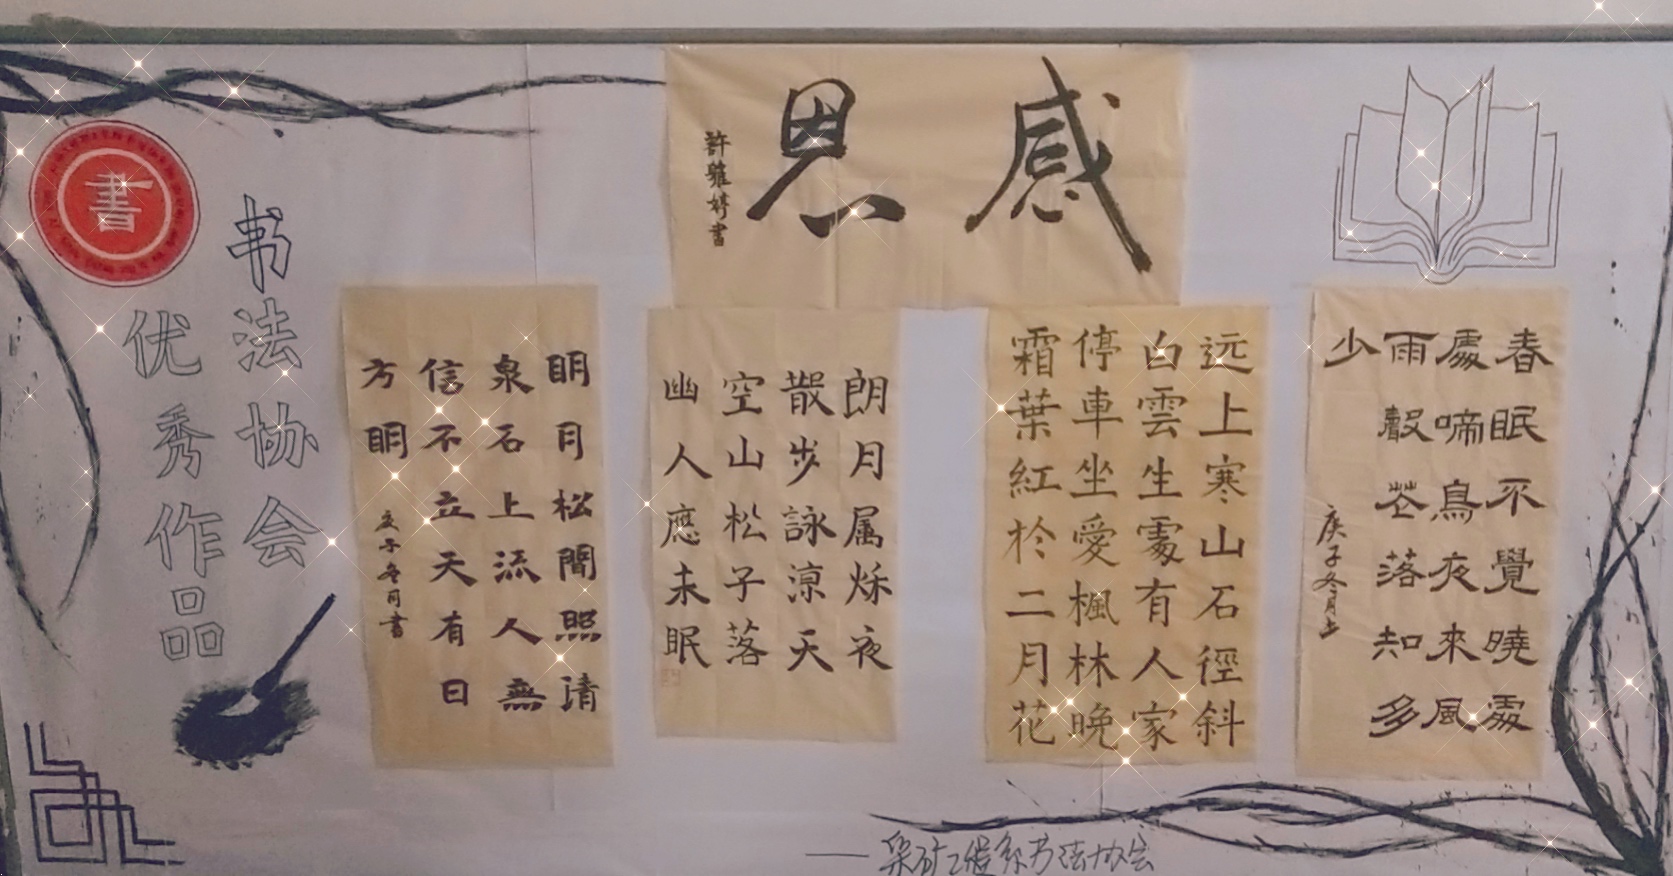 感恩
許婷書
書
书法协会
优秀作品
春眠不覺曉處
處啼鳥夜來風
雨聲花落知多
少
庚子冬月
远上寒山石徑斜
白雲生處有人家
停車坐愛楓林晚
霜葉紅於二月花
朗月属秋夜
散步詠涼天
空山松子落
幽人應未眠
明月松間照清
泉石上流人無
信不立天有日
方明
庚子冬月書
——采矿工程系书法协会